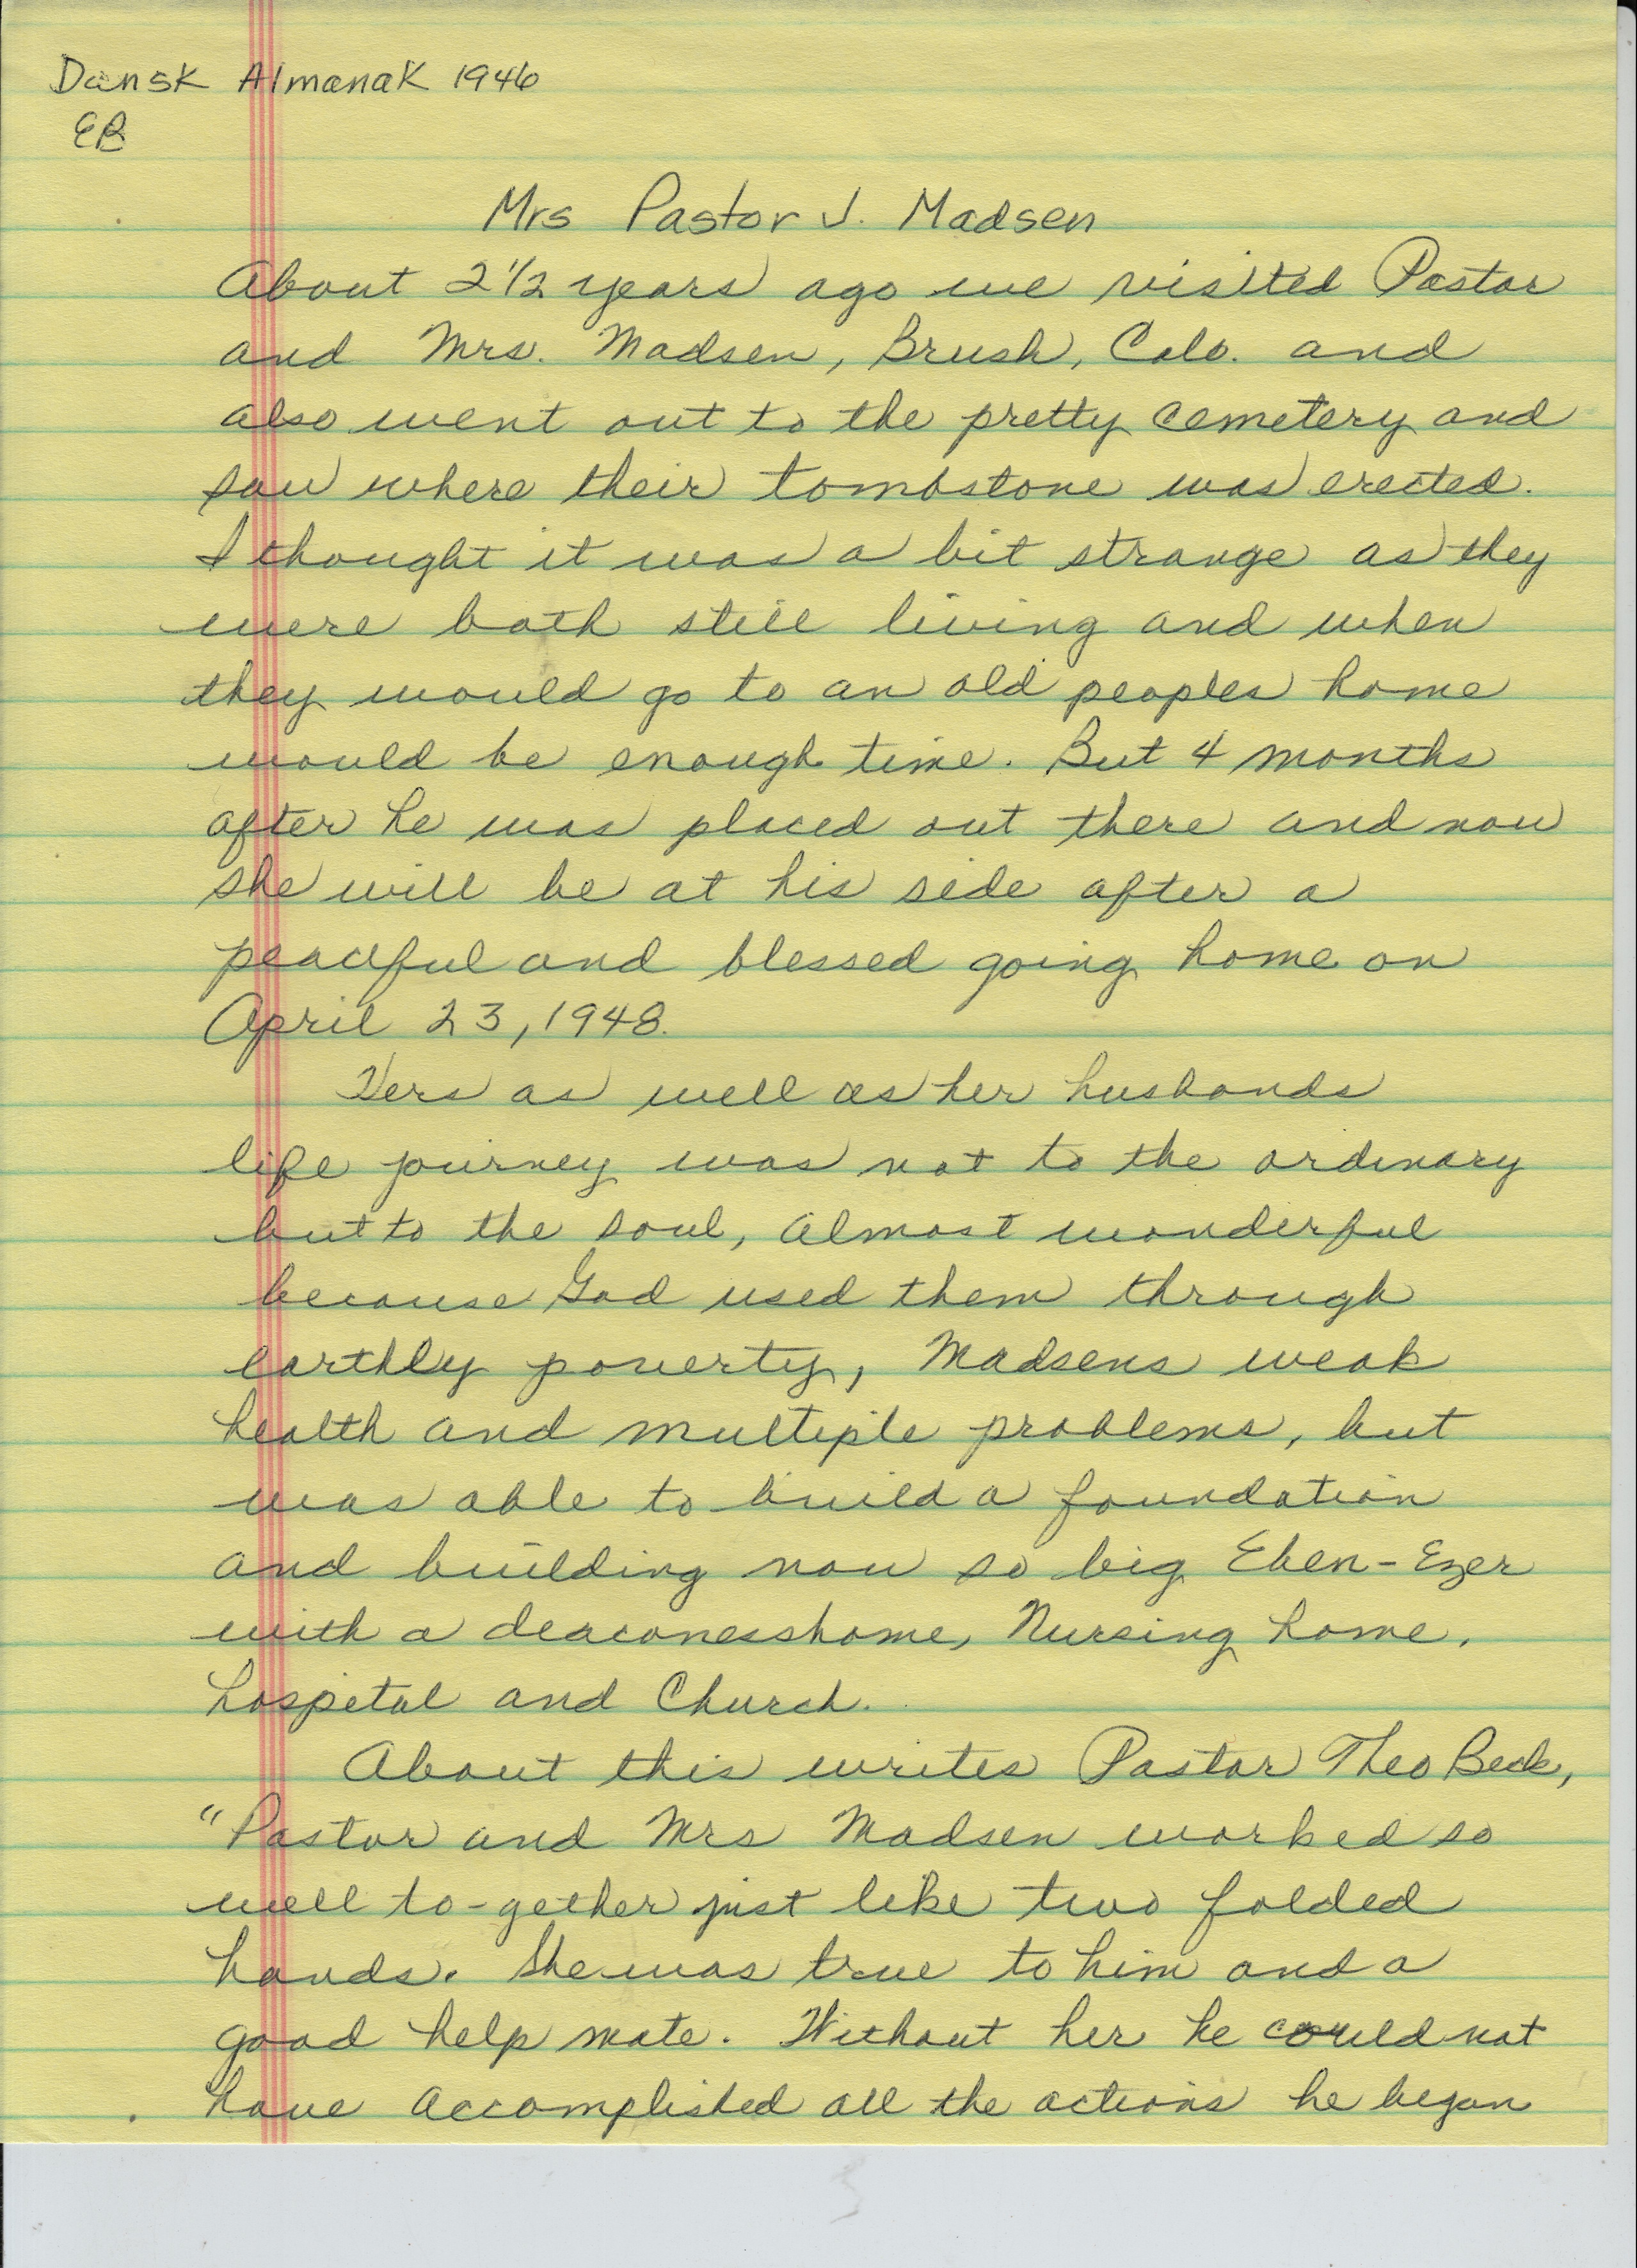 Dansk Almanak 1946
EB
Mrs Pastor J. Madsen
About 2 1/2 years ago we visited Pastor
and Mrs. Madsen, Brush, Colo. and
also went out to the pretty cemetery and
saw where their tombstone was erected.
I thought it was a bit strange as they
were both still living and when
they would go to an old peoples home
would be enough time. But 4 months
after he was placed out there and now
she will be at his side after a
peaceful and blessed going home on
April 23, 1948.
Hers as well as her husbands
life journey was not to the ordinary
but to the soul, almost wonderful
because God used them through
earthly poverty, Madsens weak
health and multiple problems, but
was able to build a foundation
and building now so big Eben-Ezer
with a deaconesshome, Nursing home,
hospital and Church.
About this writes Pastor Theo Beck,
"Pastor and Mrs Madsen worked so
well to-gether just like two folded
hands. She was true to him and a
good help mate. Without her he could not
have accomplished all the actions he began